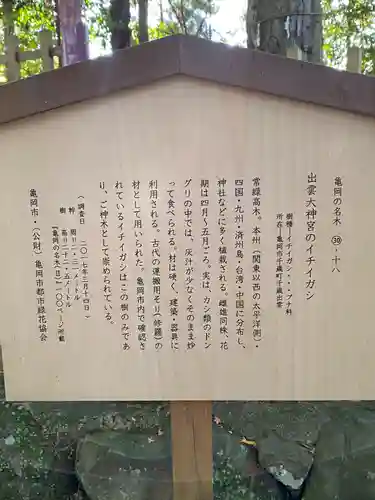 亀岡の名木 ㉚-十八
出雲大神宮のイチイガシ
樹種―イチイガシ・・・ブナ科
所在―亀岡市千歳町千歳出雲
常緑高木。本州(関東以西の太平洋側)・
四国・九州・済州島・台湾・中国に分布し、
神社などに多く植栽される。雌雄同株、花
期は四月～五月ごろ。実は、カシ類のドン
グリの中では、灰汁が少なくそのまま炒
って食べられる。材は硬く、建築・器具に
利用される。古代の運搬用そり(修羅)の
材として用いられた。亀岡市内で確認さ
れているイチイガシはこの樹のみであ
り、ご神木として崇められている。
(調査日 二〇一七年二月十四日)
幹 周り二・三一メートル
樹 高り二十五メートル
【亀岡の名木(Ⅱ)】一〇〇ページ所載
亀岡市・(公財)亀岡市都市緑花協会